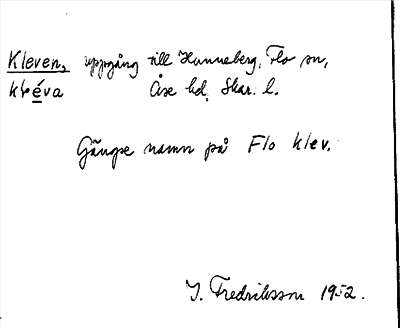 Kleven, uppgång till Hunneberg, Flo sn,
kléva Åse hd. Skar. l.
Gängse namn på Flo klev.
I. Fredriksson 1952.